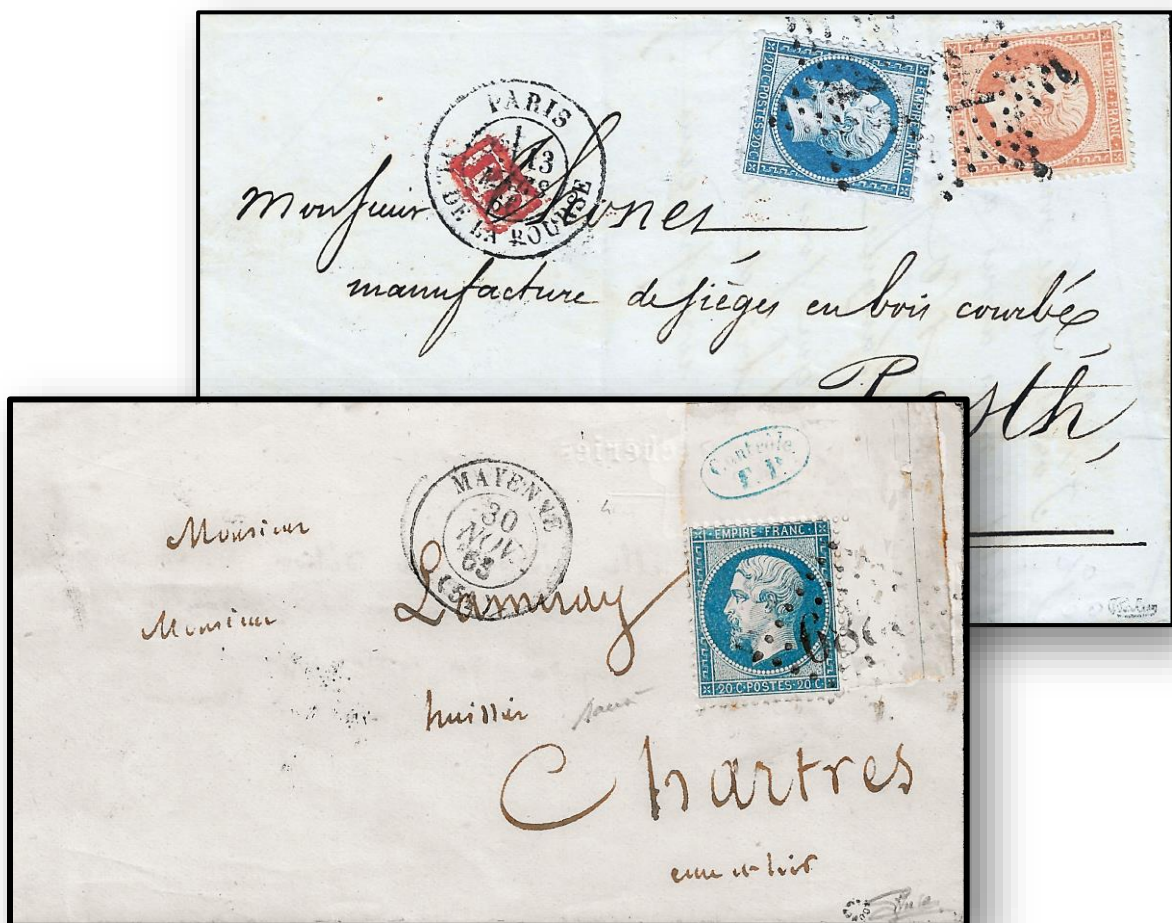 PARIS
13
MARS
Pl. DE LA BOURSE
20·C·POSTES·20·C
EMPIRE·FRANC·
EMPIRE·FRANC·
Monsieur
manufacture de siéges en bois courbés
Pesth,
MAYENNE
30
NOV.
63
Contrôle
T.P.
EMPIRE·FRANC·
20·C·POSTES·20·C·
Monsieur
Monsieur Launay
huissier
Chartres
eure et loir